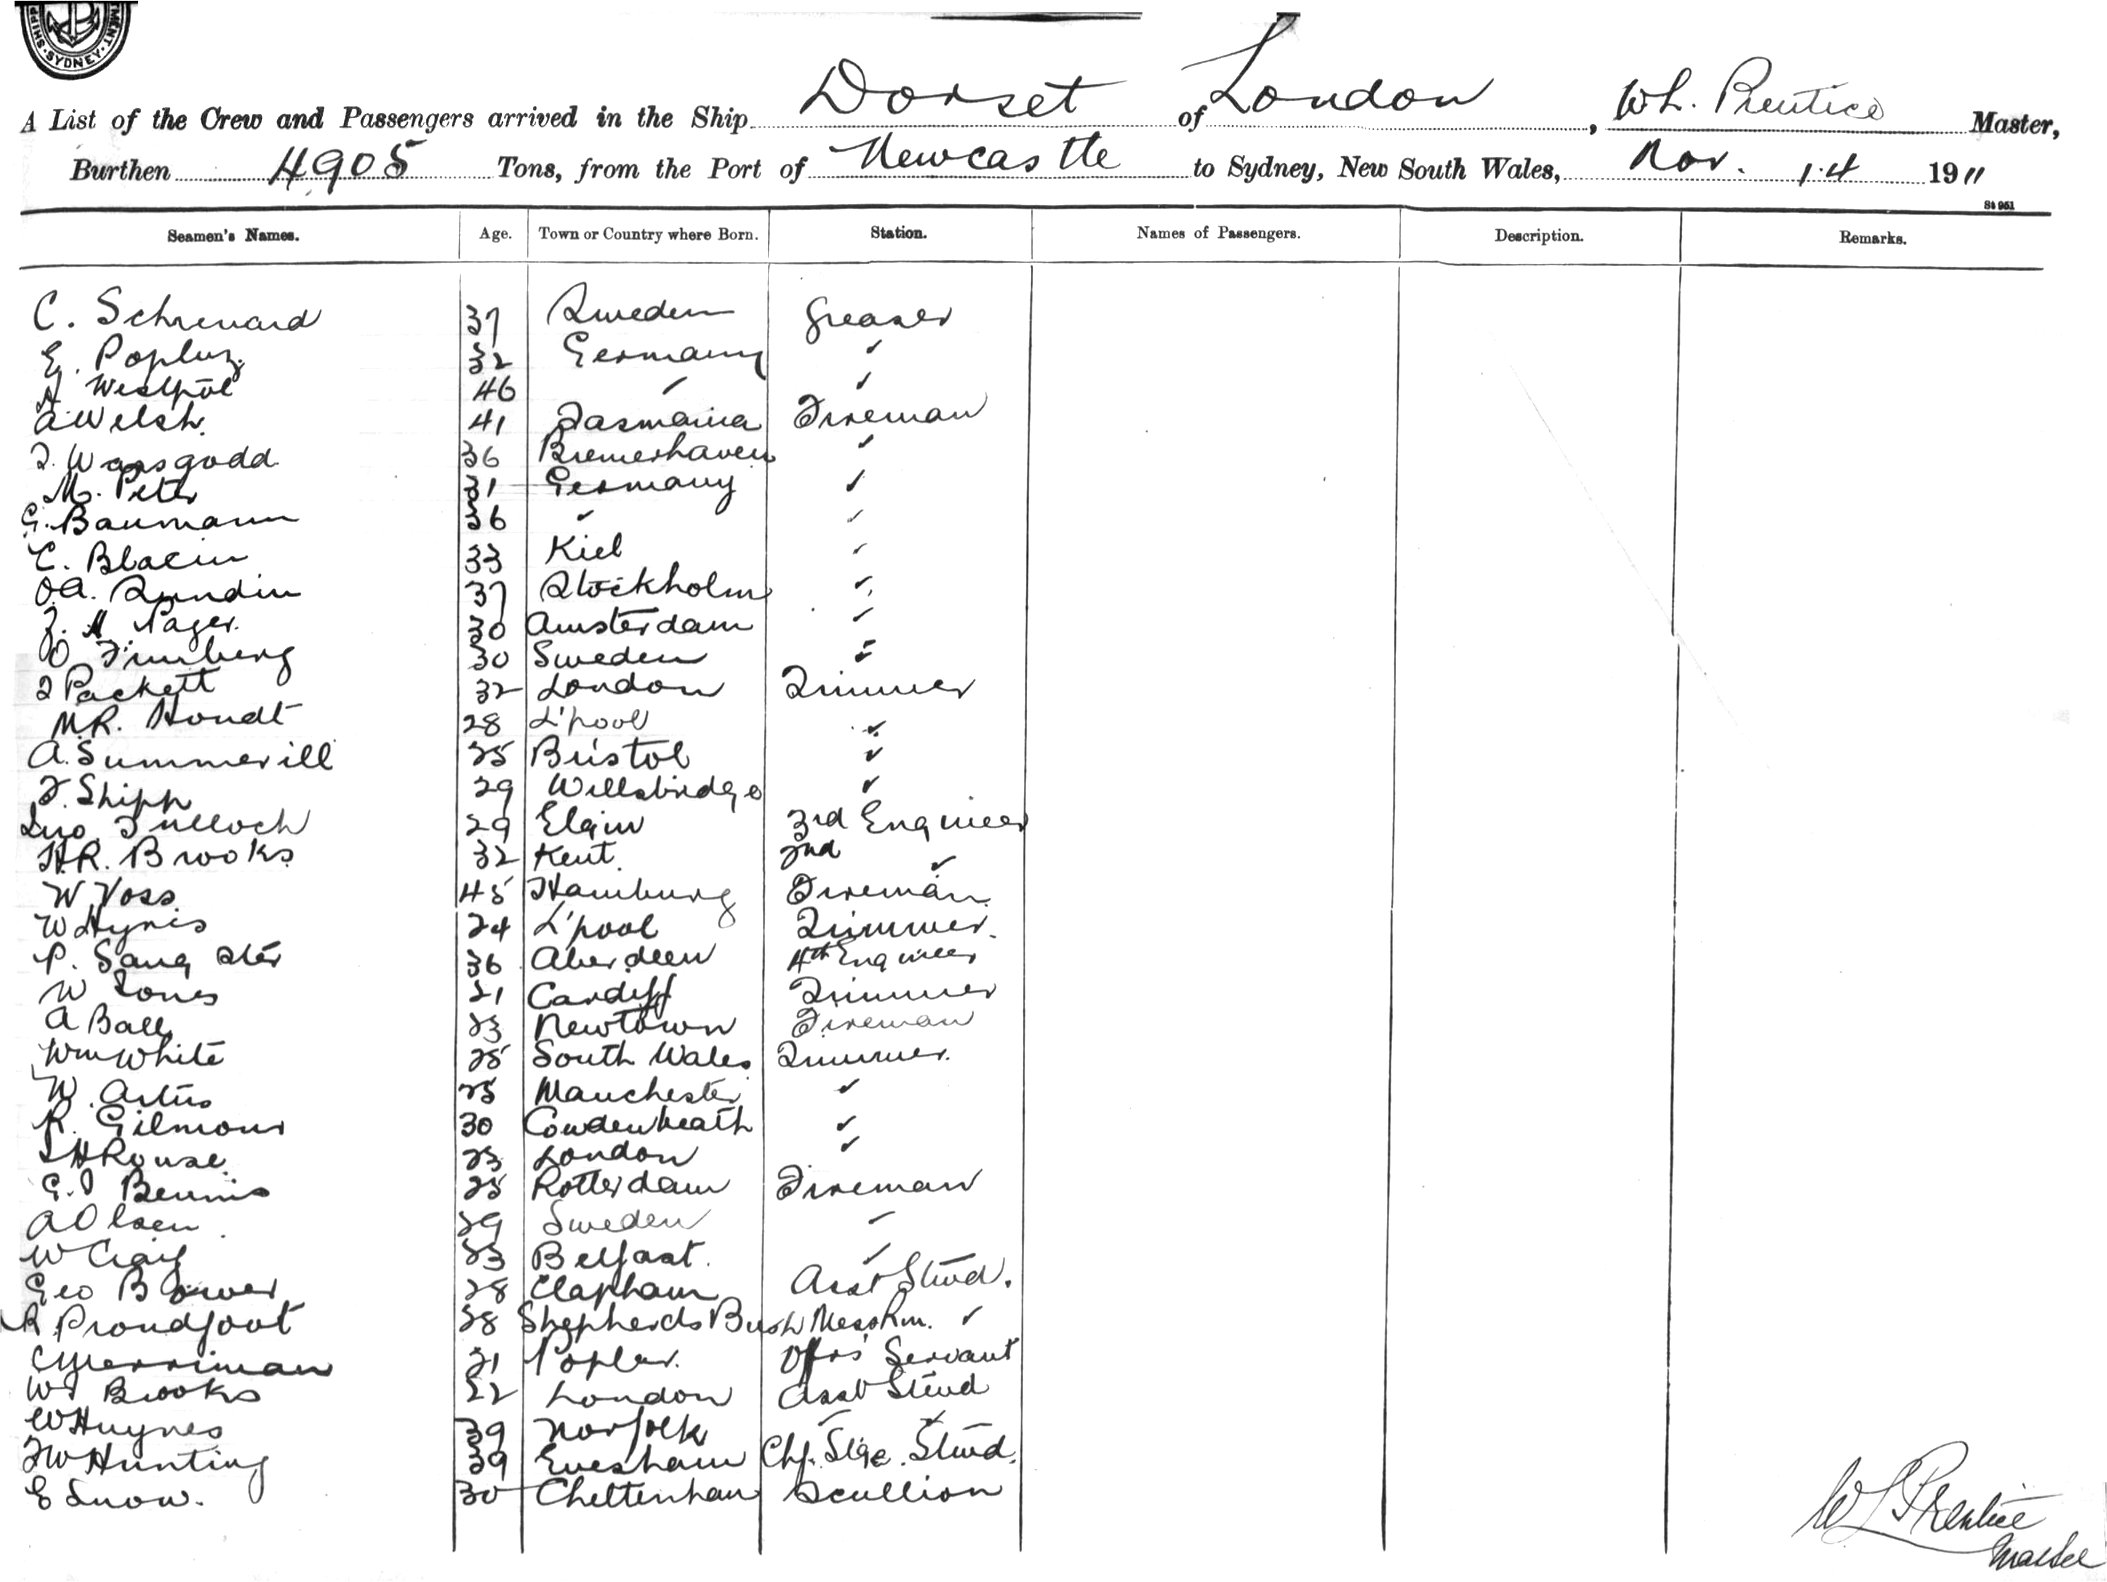 SHIPP MENT. A SYDNEY.
A List of the Crew and Passengers arrived in the Ship Dorset of London, W L. Prentice Master,
Burthen 4905 Tons, from the Port of Newcastle to Sydney, New South Wales, Nov. 14 1911
St 951
Seamen's Names. Age. Town or Country where Born. Station. Names of Passengers. Description. Remarks.
C. Schrenard 37 Sweden Greaser
E. Popluz 32 Germany ✓
A Westpol 46 ✓ ✓
A. Welsh. 41 Tasmania Fireman
F. Wassgodd 36 Bremerhaven ✓
M. Peter 31 Germany ✓
G. Baumann 36 ✓ ✓
C. Blacin 33 Kiel ✓
O.A. Sundin 37 Stockholm ✓
Z. A Pager. 30 Amsterdam ✓
O 30 Sweden ✓
J Packett 32 London Trimmer
M.R. Houdt 28 L'pool ✓
A. Summerill 25 Bristol ✓
F. Shipp 29 Willsbridge ✓
Jno Tulloch 29 Elgin 3rd Engineer
H.R. Brooks 32 Kent. 2nd ✓
W. Voss 45 Hamburg Fireman
W Hynis 24 L'pool Trimmer.
P. Sangster 36 Aberdeen 4th Engineer
W Jones 21 Cardiff Trimmer
A Ball 23 Newtown Fireman
Wm White 25 South Wales Trimmer.
W. Artus 25 Manchester ✓
R. Gilmour 30 Cowdenbeath ✓
J H Rouse. 23 London ✓
G. J Bennis 25 Rotterdam Fireman
A Olsen 29 Sweden ✓
W Craig 23 Belfast. ✓
Geo B Gower 28 Clapham Asst Stwd.
R Proudfoot 28 Shepherds Bush Messrm. ✓
C Merriman 21 Poplar. Offrs' Servant
W J Brooks 22 London Asst Stewd
W Huynes 39 Norfolk ✓ ✓
F W Hunting 39 Evesham Chf. Stge. Stwd.
E Snow. 30 Cheltenham Scullion
W L Prentice
Master